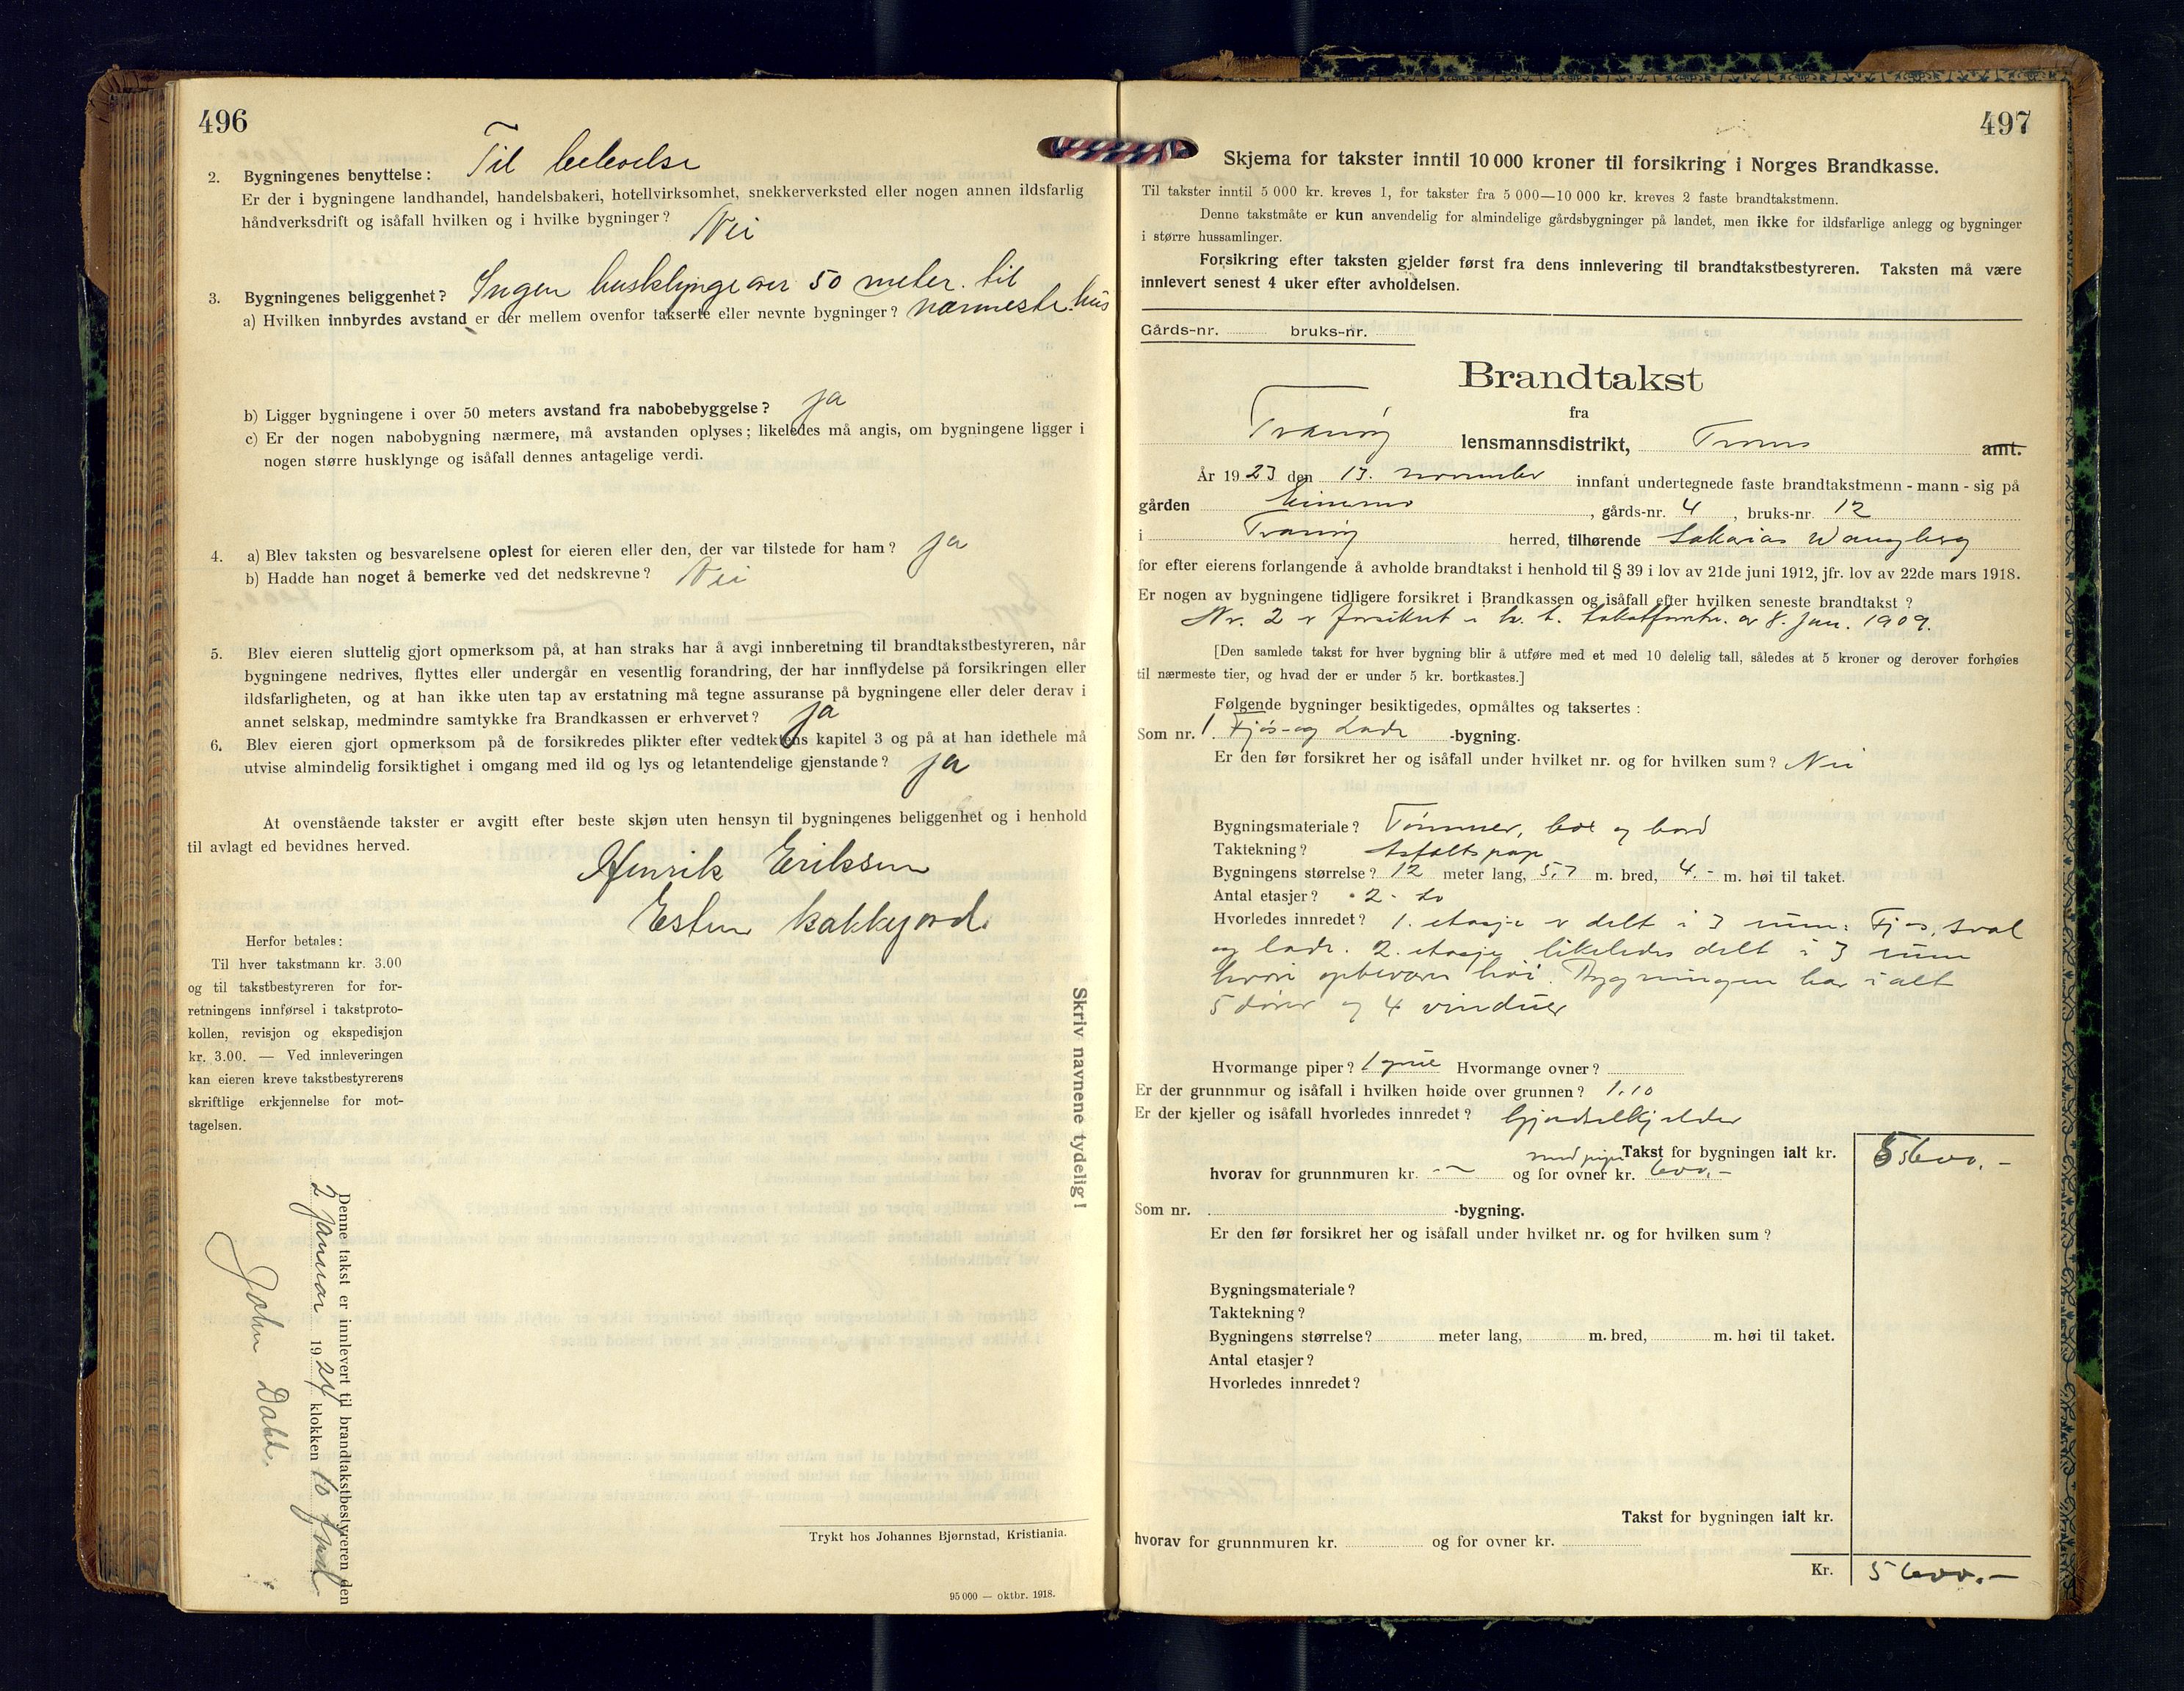 496
2. Bygningenes benyttelse: Til beboelse
Er der i bygningene landhandel, handelsbakeri, hotellvirksomhet, snekkerverksted eller nogen annen ildsfarlig
håndverksdrift og isåfall hvilken og i hvilke bygninger? Nei
3. Bygningenes beliggenhet? Ingen husklynge over 50 meter til
a) Hvilken innbyrdes avstand er der mellem ovenfor takserte eller nevnte bygninger? nærmeste hus
b) Ligger bygningene i over 50 meters avstand fra nabobebyggelse? ja
c) Er der nogen nabobygning nærmere, må avstanden oplyses; likeledes må angis, om bygningene ligger i
nogen større husklynge og isåfall dennes antagelige verdi.
4. a) Blev taksten og besvarelsene oplest for eieren eller den, der var tilstede for ham? ja
b) Hadde han noget å bemerke ved det nedskrevne? Nei
5. Blev eieren sluttelig gjort opmerksom på, at han straks har å avgi innberetning til brandtakstbestyreren, når
bygningene nedrives, flyttes eller undergår en vesentlig forandring, der har innflydelse på forsikringen eller
ildsfarligheten, og at han ikke uten tap av erstatning må tegne assuranse på bygningene eller deler derav i
annet selskap, medmindre samtykke fra Brandkassen er erhvervet? ja
6. Blev eieren gjort opmerksom på de forsikredes plikter efter vedtektens kapitel 3 og på at han idethele må
utvise almindelig forsiktighet i omgang med ild og lys og letantendelige gjenstande? ja
At ovenstående takster er avgitt efter beste skjøn uten hensyn til bygningenes beliggenhet og i henhold
til avlagt ed bevidnes herved.
Henrik Eriksen
Esten Kakkfjord.
Herfor betales:
Til hver takstmann kr. 3.00
og til takstbestyreren for for-
retningens innførsel i takstproto-
kollen, revisjon og ekspedisjon
kr. 3.00. — Ved innleveringen
kan eieren kreve takstbestyrerens
skriftlige erkjennelse for mot-
tagelsen.
Skriv navnene tydelig!
Denne takst er innlevert til brandtakstbestyreren den
2 januar 1924 klokken 10
John Dahl.
Trykt hos Johannes Bjørnstad, Kristiania.
95 000 — oktbr. 1918.
497
Skjema for takster inntil 10 000 kroner til forsikring i Norges Brandkasse.
Til takster inntil 5 000 kr. kreves 1, for takster fra 5 000—10 000 kr. kreves 2 faste brandtakstmenn.
Denne takstmåte er kun anvendelig for almindelige gårdsbygninger på landet, men ikke for ildsfarlige anlegg og bygninger
i større hussamlinger.
Forsikring efter taksten gjelder først fra dens innlevering til brandtakstbestyreren. Taksten må være
innlevert senest 4 uker efter avholdelsen.
Gårds-nr. bruks-nr.
Brandtakst
fra
Tranøy lensmannsdistrikt, Troms amt.
År 1923 den 13. november innfant undertegnede faste brandtakstmenn - mann - sig på
gården , gårds-nr. 4, bruks-nr. 12
i Tranøy herred, tilhørende Sakarias Wangberg
for efter eierens forlangende å avholde brandtakst i henhold til § 39 i lov av 21de juni 1912, jfr. lov av 22de mars 1918.
Er nogen av bygningene tidligere forsikret i Brandkassen og isåfall efter hvilken seneste brandtakst?
Nr. 2 er forsikret i h. t. takstforretn. av 8. jan. 1909.
[Den samlede takst for hver bygning blir å utføre med et med 10 delelig tall, således at 5 kroner og derover forhøies
til nærmeste tier, og hvad der er under 5 kr. bortkastes.]
Følgende bygninger besiktigedes, opmåltes og taksertes:
Som nr. 1. Fjøs- og Lade -bygning.
Er den før forsikret her og isåfall under hvilket nr. og for hvilken sum? Nei
Bygningsmateriale? Tømmer, og bord
Taktekning? Asfaltspap
Bygningens størrelse? 12 meter lang, 5,7 m. bred, 4.- m. høi til taket.
Antal etasjer? 2 - to
Hvorledes innredet? 1. etasje er delt i 3 rum: Fjøs, sval
og lade. 2. etasje likeledes delt i 3 rum
hvori opbevares høi. Bygningen har ialt
5 dører og 4 vinduer
Hvormange piper? 1 grue Hvormange ovner?
Er der grunnmur og isåfall i hvilken høide over grunnen? 1.10
Er der kjeller og isåfall hvorledes innredet? Gjødselkjelder
Takst for bygningen ialt kr. 5600.-
hvorav for grunnmuren kr. — og for ovner kr. med pipe 600.-
Som nr. -bygning.
Er den før forsikret her og isåfall under hvilket nr. og for hvilken sum?
Bygningsmateriale?
Taktekning?
Bygningens størrelse? meter lang, m. bred, m. høi til taket.
Antal etasjer?
Hvorledes innredet?
Takst for bygningen ialt kr.
hvorav for grunnmuren kr. og for ovner kr.
Kr. 5600.-